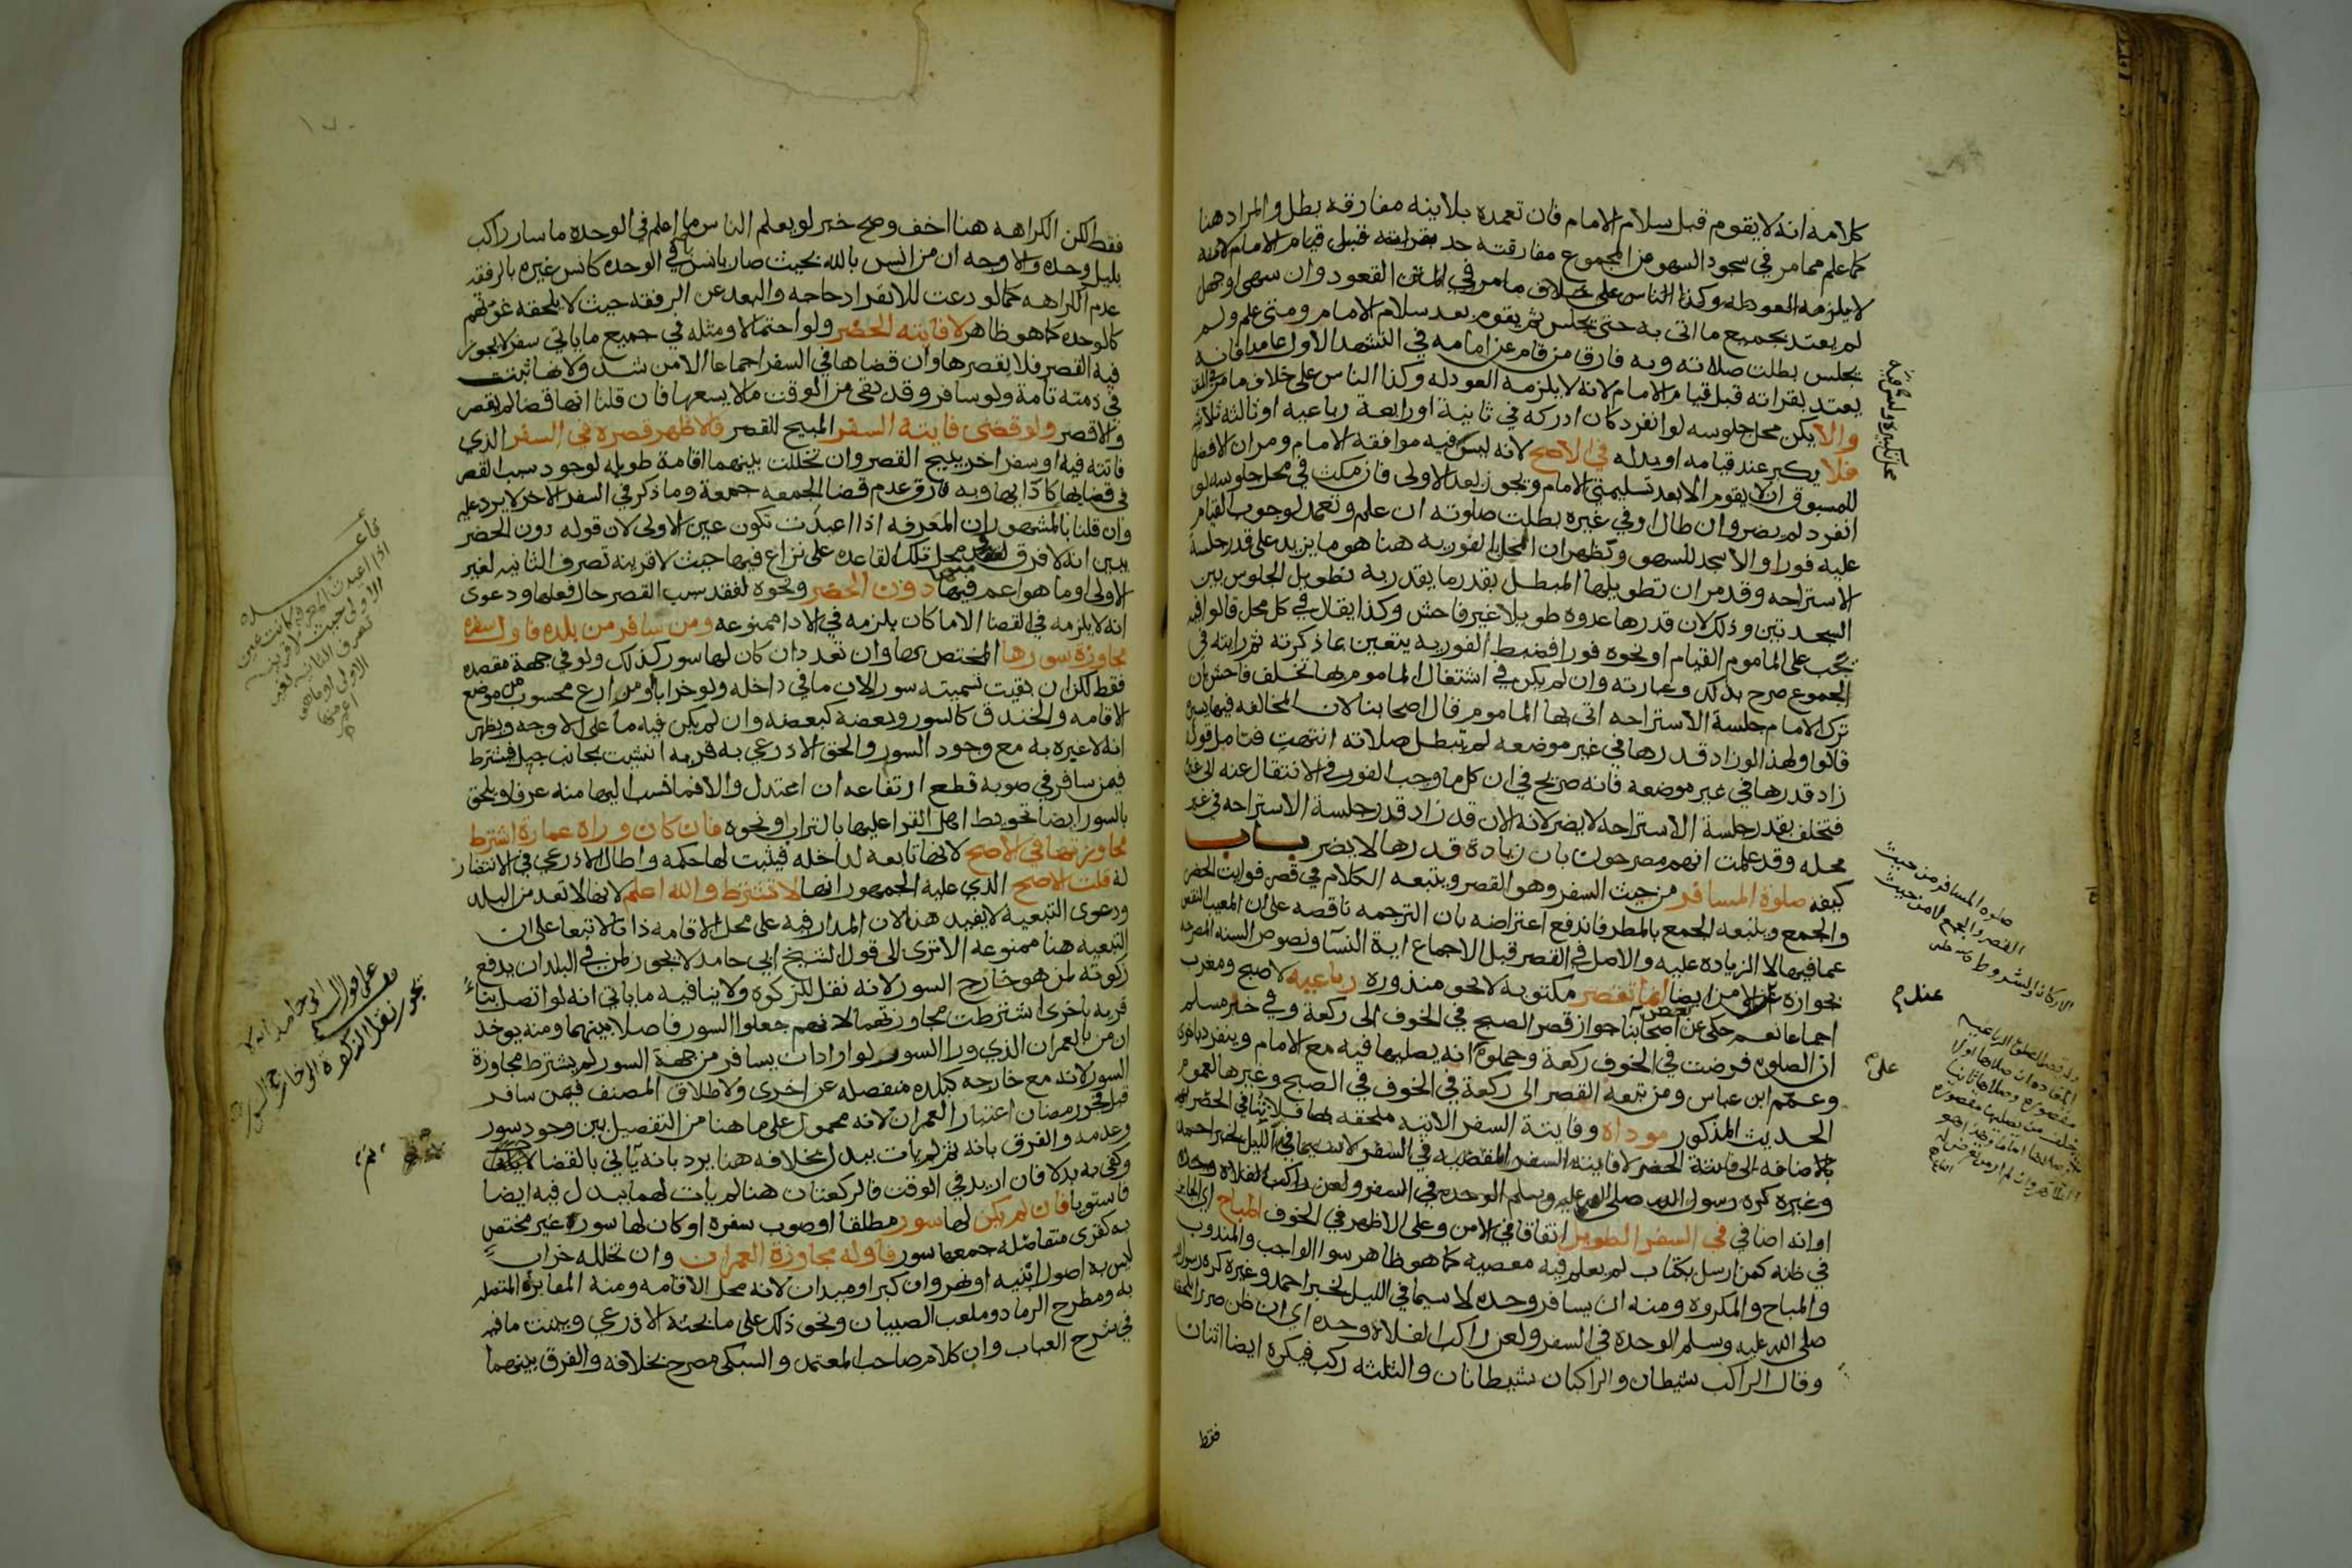 كلامه انه لا يقوم قبل سلام الامام فان تعمده بلا نية مفارقه بطل والمراد هنا
كما علم مما مر في سجود السهو عن المجموع مفارقته حد
لا يلزمه العود له وكذا الناس على خلاف ما مر في القعود وان سهى او جهل
لم يعتد بجميع ما اتى به حتى يجلس ثم يقوم بعد سلام الامام ومتى علم ولم
يجلس بطلت صلاته وبه فارق من قام عن امامه في التشهد الاول عامدا فانه
يعتد بقراته قبل قيام الامام لانه لا يلزمه العود له وكذا الناس على خلاف ما مر
والا يكن محل جلوسه لو انفرد كان ادركه في ثانية او رابعة رباعيه او ثالثه ثلاثيه
فلا يكبر عند قيامه او بدله في الاصح لانه ليس فيه موافقة الامام ومر ان الافضل
للمسبوق ان لا يقوم الا بعد تسليمتي الامام ويجوز بعد الاولى فان مكث في محل جلوسه لو
انفرد لم يضر وان طال او في غيره بطلت صلوته ان علم وتعمد لوجوب القيام
عليه فورا والا سجد للسهو ويظهر ان المخل بالفوريه هنا هو ما يزيد على قدر جلسة
الاستراحه وقد مر ان تطويلها المبطل بقدر ما يقدر به تطويل الجلوس بين
السجدتين وذلك لان قدرها عدوه طويلا غير فاحش وكذا يقال في كل محل قالوا فيه
يجب على الماموم القيام او نحوه فورا فضبط الفوريه يتعين بما ذكرته ثم رايته في
المجموع صرح بذلك وعبارته وان لم يكن في اشتغال الماموم بها تخلف فاحش بان
ترك الامام جلسة الاستراحه اتى بها الماموم قال اصحابنا لان المخالفه فيها يسيره
قالوا ولهذا لو زاد قدرها في غير موضعه لم تبطل صلاته انتهت فتامل قوله
زاد قدرها في غير موضعه فانه صريح في ان كل ما وجب الفور في الانتقال عنه الى غيره
فتخلف بقدر جلسة الاستراحه لا يضر لانه الان قد زاد قدر جلسة الاستراحه في غير
محله وقد علمت انهم مصرحون بان زيادة قدرها لا يضر باب
كيفه صلوة المسافر من حيث السفر وهو القصر ويتبعه الكلام في قصر فوايت الحضر
والجمع ويتبعه الجمع بالمطر فاندفع اعتراضه بان الترجمه ناقصه على ان المعيب النقص
عما فيها لا الزياده عليه والاصل في القصر قبل الاجماع اية النسا ونصوص السنه المصرحه
بجوازه عند الامن ايضا انما تقصر مكتوبه لا نحو منذوره رباعيه لا صبح ومغرب
اجماعا نعم حكى عن بعض اصحابنا جواز قصر الصبح في الخوف الى ركعة وفي خبر مسلم
ان الصلوه فرضت في الخوف ركعة وحملوه انه يصليها فيه مع الامام وينفرد باخرى
وعمم ابن عباس ومن تبعه القصر الى ركعة في الخوف في الصبح وغيرها لعموم
الحديث المذكور موداة وفايتة السفر الاتيه ملحقه بها
بالاضافه الى فايتة الحضر لا فايته السفر
وغيره كره رسول الله صلى الله عليه وسلم الوحده في السفر ولعن راكب الفلاة وحده
او انه اضافي في السفر الطويل اتفاقا في الامن وعلى الاظهر في الخوف المباح اي الجايز
في ظنه كمن ارسل بكتاب لم يعلم فيه معصية كما هو ظاهر سوا الواجب والمندوب
والمباح والمكروه ومنه ان يسافر وحده لا سيما في الليل لخبر احمد وغيره كره رسول الله
صلى الله عليه وسلم الوحدة في السفر ولعن راكب الفلاة وحده اي ان ظن ضررا يلحقه
وقال الراكب شيطان والراكبان شيطانان والثلثه ركب فيكره ايضا اثنان
فقط
عندم
فقط لكن الكراهه هنا اخف وصح خبر لو يعلم الناس ما اعلم في الوحده ما سار راكب
بليل وحده والاوجه ان من انس بالله بحيث صار يانس في الوحده كانس غيره بالرفقه
عدم الكراهه كما لو دعت للانفراد حاجه والبعد عن الرفقه حيث لا يلحقه غوثهم
كالوحده كما هو ظاهر لا فايته الحضر ولو احتمالا ومثله في جميع ما ياتي سفر لا يجوز
فيه القصر فلا يقصرها وان قضاها في السفر اجماعا الا من شذ ولانها ثبتت
في ذمته تامة ولو سافر وقد بقي من الوقت ما لا يسعها فان قلنا انها قضا لم يقصر
والا قصر ولو قضى فايتة السفر المبيح للقصر فالاظهر قصره في السفر الذي
فاتته فيه او سفر اخر يبيح القصر وان تخللت بينهما اقامة طويله لوجود سبب القصر
في قضايها كادايها وبه فارق عدم قضا الجمعه جمعة وما ذكر في السفر الاخر لا يرد عليه
وان قلنا بالمشهور ان المعرفه اذا اعيدت تكون عين الاولى لان قوله دون الحضر
يبين انه لا فرق محل تلك القاعده على نزاع فيها حيث لا قرينة تصرف الثانيه لغير
الاولى او ما هو اعم منها دون الحضر ونحوه لفقد سبب القصر حال فعلها ودعوى
انه لا يلزمه في القضا الا ما كان يلزمه في الادا ممنوعه ومن سافر من بلده فاول سفره
مجاوزة سورها المختص بها وان تعدد ان كان لها سور كذلك ولو في جهة مقصده
فقط لكن ان بقيت تسميته سورا لان ما في داخله ولو خرابا ومزارع محسوب من موضع
الاقامه والخندق كالسور وبعضه كبعضه وان لم يكن فيه ما على الاوجه ويظهر
انه لا عبرة به مع وجود السور والحق الاذرعي به قرية انشيت بجانب جبل فيشترط
فيمن سافر في صوبه قطع ارتفاعه ان اعتدل والا فما نسب اليها منه عرفا ويلحق
بالسور ايضا تحويط اهل القرا عليها بالتراب ونحوه فان كان وراه عمارة اشترط
مجاوزتها في الاصح لانها تابعه لداخله فيثبت لها حكمه واطال الاذرعي في الانتصار
له قلت الاصح الذي عليه الجمهور انها لا تشترط والله اعلم لانها لا تعد من البلد
ودعوى التبعيه لا يفيد هنا لان المدار فيه على محل الاقامه ذاتا لا تبعا على ان
التبعيه هنا ممنوعه الا ترى الى قول الشيخ ابي حامد لا يجوز لمن في البلد ان يدفع
زكوته لمن هو خارج السور لانه نقل للزكوة ولا ينافيه ما ياتي انه لو اتصل بناء
قرية باخرى اشترطت مجاوزتهما لانهم جعلوا السور فاصلا بينهما ومنه يوخذ
ان من بالعمران الذي ورا السور لو اراد ان يسافر من جهة السور لم يشترط مجاوزة
السور لانه مع خارجه كبلده منفصله عن اخرى ولاطلاق المصنف فيمن سافر
قبل فجر رمضان اعتبار العمران لانه محمول على ما هنا من التفصيل بين وجود سور
وعدمه والفرق بانه ثم لم يات ببدل بخلافه هنا يرد بانه ياتي بالقضا
وكفى به بدلا فان اريد في الوقت فالركعتان هنا لم يات لهما ببدل فيه ايضا
فاستويا فان لم يكن لها سور مطلقا او صوب سفره او كان لها سور غير مختص
به كقرى متفاصله جمعها سور فاوله مجاوزة العمران وان تخلله خراب
ليس به اصول ابنيه او نهر وان كبر او ميدان لانه محل الاقامه ومنه المقابر المتصله
به ومطرح الرماد وملعب الصبيان ونحو ذلك على ما بحثه الاذرعي وبينت ما فيه
في شرح العباب وان كلام صاحب المعتمد والسبكي مصرح بخلافه والفرق بينهما
اذا اعيدت المعرفه كانت عين
الاولى حيث لا قرينه
تصرف الثانيه لغير
الاولى او ما هو
اعم منها